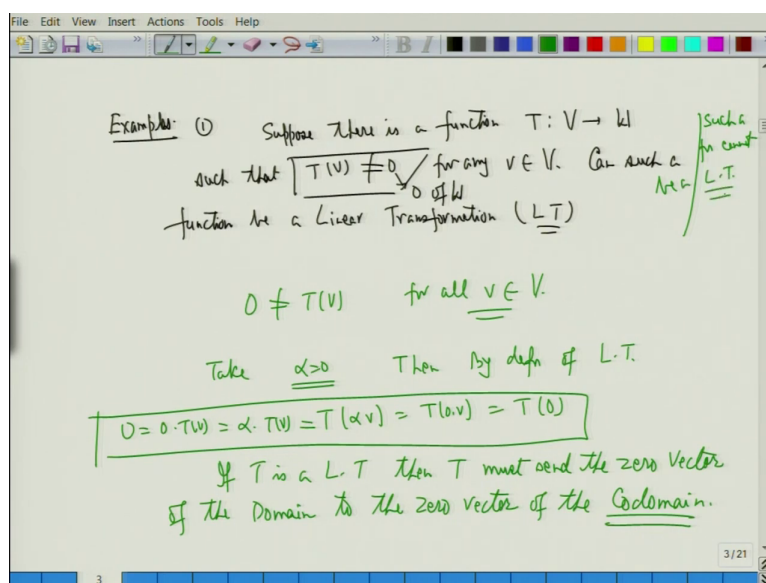 File Edit View Insert Actions Tools Help
Examples. ① Suppose there is a function T : V → W
such that T(V) ≠ 0 for any v ∈ V. Can such a
0 of W
function be a Linear Transformation (LT)
such a
fn cannot
be a L.T.
0 ≠ T(V) for all v ∈ V.
Take α=0 Then By defn of L.T.
0 = 0·T(V) = α·T(V) = T(αv) = T(0.v) = T(0)
If T is a L.T then T must send the zero vector
of the Domain to the zero vector of the Codomain.
3/21
3